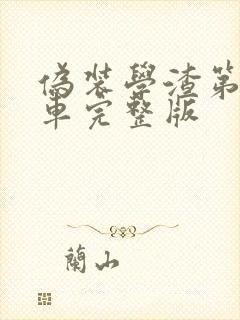 偽裝學渣第
車完整版
蘭山